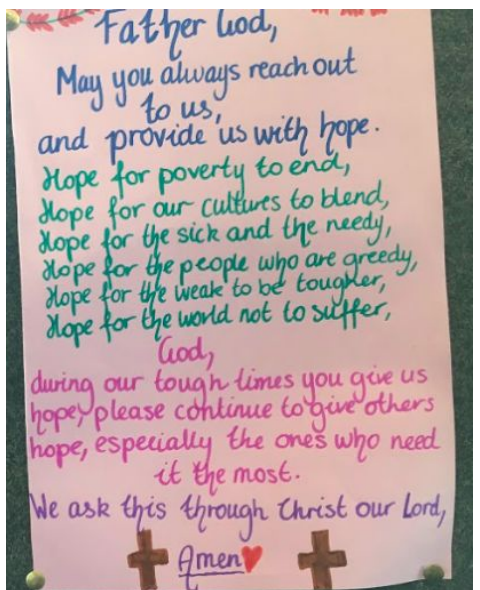 Father God,
May you always reach out
to us,
and provide us with hope.
Hope for poverty to end,
Hope for our cultures to blend,
Hope for the sick and the needy,
Hope for the people who are greedy,
Hope for the weak to be tougher,
Hope for the world not to suffer,
God,
during our tough times you give us
hope, please continue to give others
hope, especially the ones who need
it the most.
We ask this through Christ our Lord,
Amen